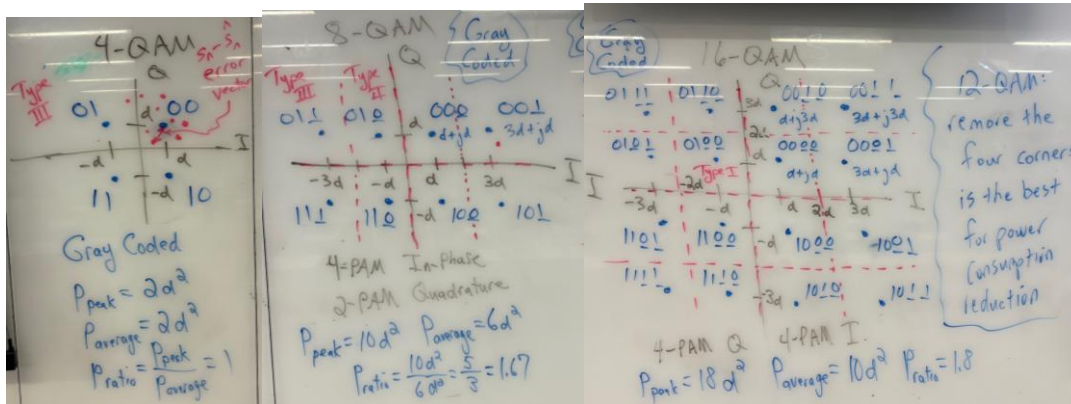 4-QAM
Q
Sn-Ŝn
error
vector
Type
III
01
00
d
I
-d
d
-d
11
10
Gray Coded
Ppeak = 2d²
Paverage = 2d²
Pratio = Ppeak/Paverage = 1
8-QAM
Gray
Coded
Q
Type
III
Type
II
011
010
000
001
d
d+jd
3d+jd
I
-3d
-d
d
3d
111
110
-d
100
101
4-PAM In-Phase
2-PAM Quadrature
Ppeak = 10d² Paverage = 6d²
Pratio = 10d²/6d² = 5/3 = 1.67
Gray
Coded
16-QAM
Q
0111
0110
3d
0010
0011
d+j3d
3d+j3d
2d
0101
0100
d
0000
0001
Type I
d+jd
3d+jd
I
-2d
I
-3d
-d
d
2d
3d
1101
1100
-d
1000
1001
1111
1110
-3d
1010
1011
4-PAM Q 4-PAM I
Ppeak = 18d² Paverage = 10d² Pratio = 1.8
12-QAM:
remove the
four corners
is the best
for power
consumption
reduction